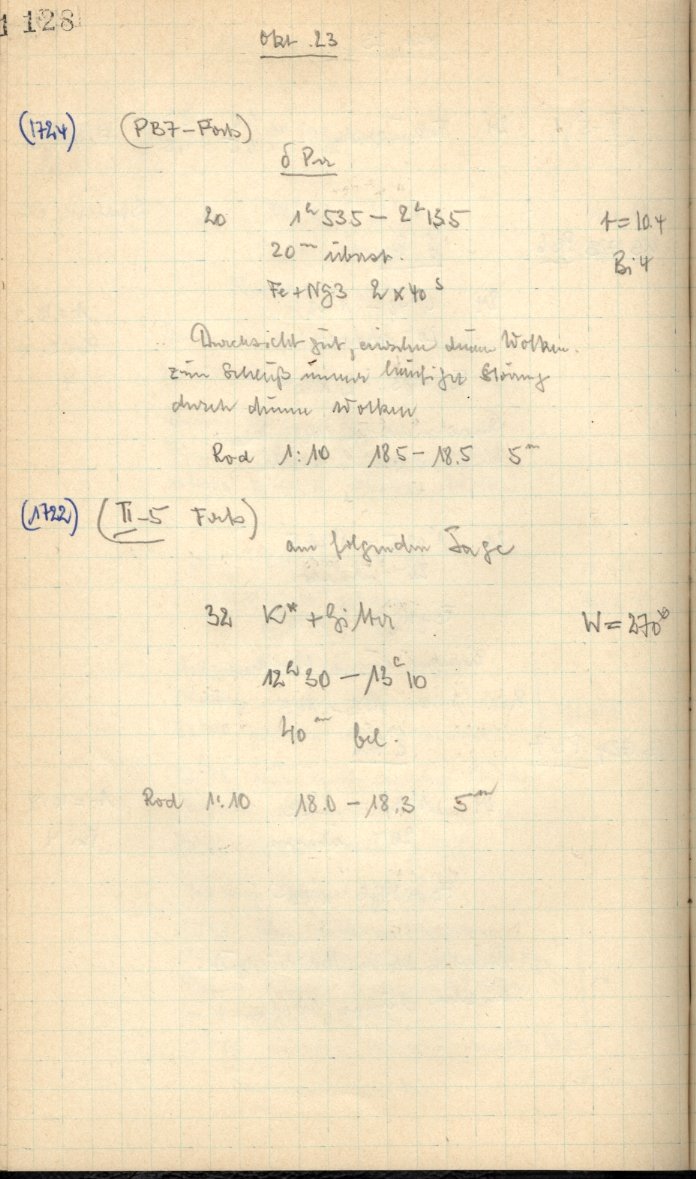 1 128
Okt. 23
(1724) (PB7-Forts)
δ Per
20 1ʰ535 – 2ʰ135 t = 10.4
20ᵐ überst. Bi 4
Fe + Ng3 2 x 40ˢ
Durchsicht gut, dünne Wolken.
zum Schluß immer häufiger Störung
durch dünne Wolken
Rod 1:10 18.5 – 18.5 5ᵐ
(1722) (II-5 Forts)
am folgenden Tage
32 K* + Gitter W = 270°
12ʰ30 – 13ʰ10
40ᵐ bel.
Rod 1:10 18.0 – 18.3 5ᵐ